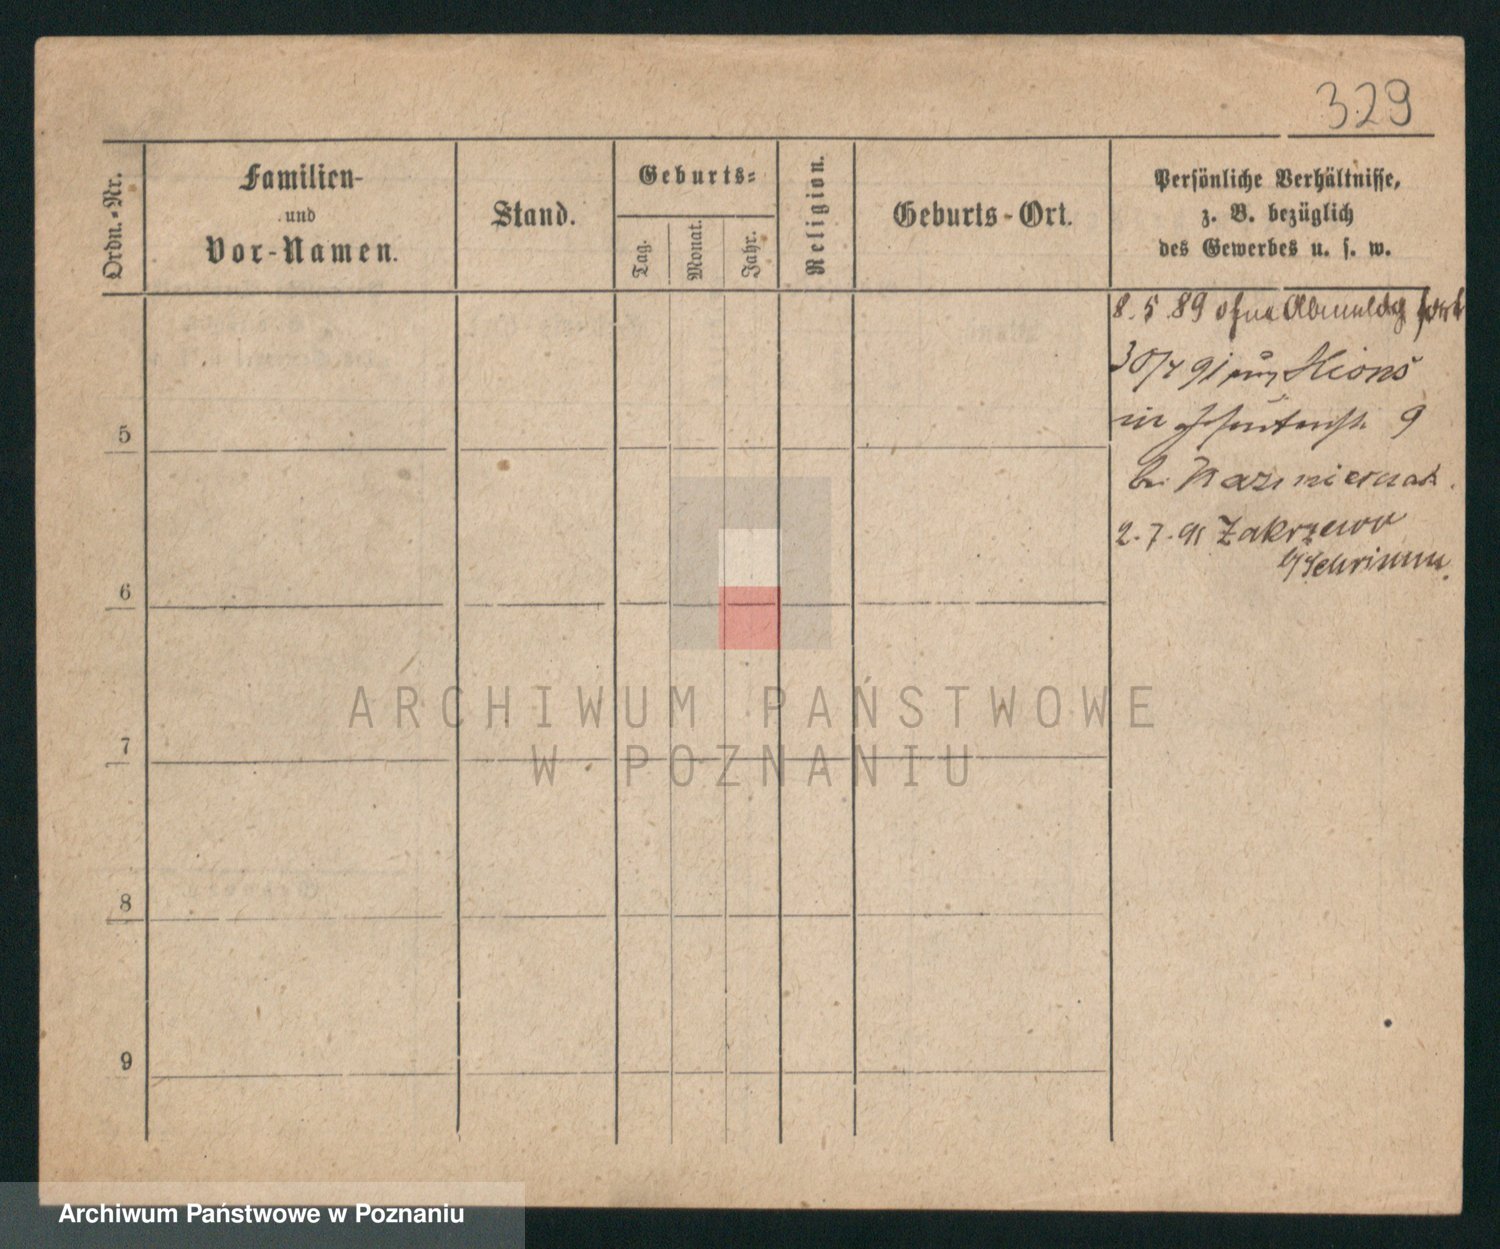 329
Ordn.-Nr.
Familien-
und
Vor-Namen.
Stand.
Geburts=
Tag.
Monat.
Jahr.
Religion.
Geburts-Ort.
Persönliche Verhältnisse,
z. B. bezüglich
des Gewerbes u. s. w.
8. 5. 89 ohne Abmeldg fort
30/4 91 Xions
in 9
b.
2. 7. 91 Zakrzewo
b/Schrimm.
5
6
7
8
9
ARCHIWUM PAŃSTWOWE
W POZNANIU
Archiwum Państwowe w Poznaniu